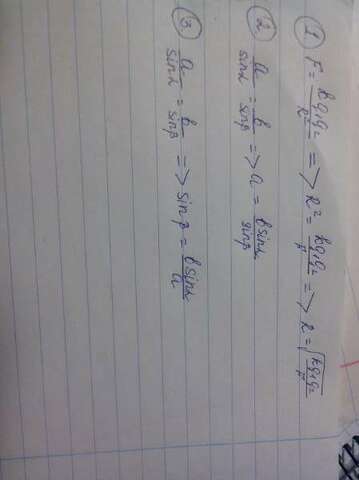 ① F = kq₁q₂/R² => R² = kq₁q₂/F => R = √(kq₁q₂/F)
② a/sinα = b/sinβ => a = b sinα/sinβ
③ a/sinα = b/sinβ => sinβ = b sinα/a